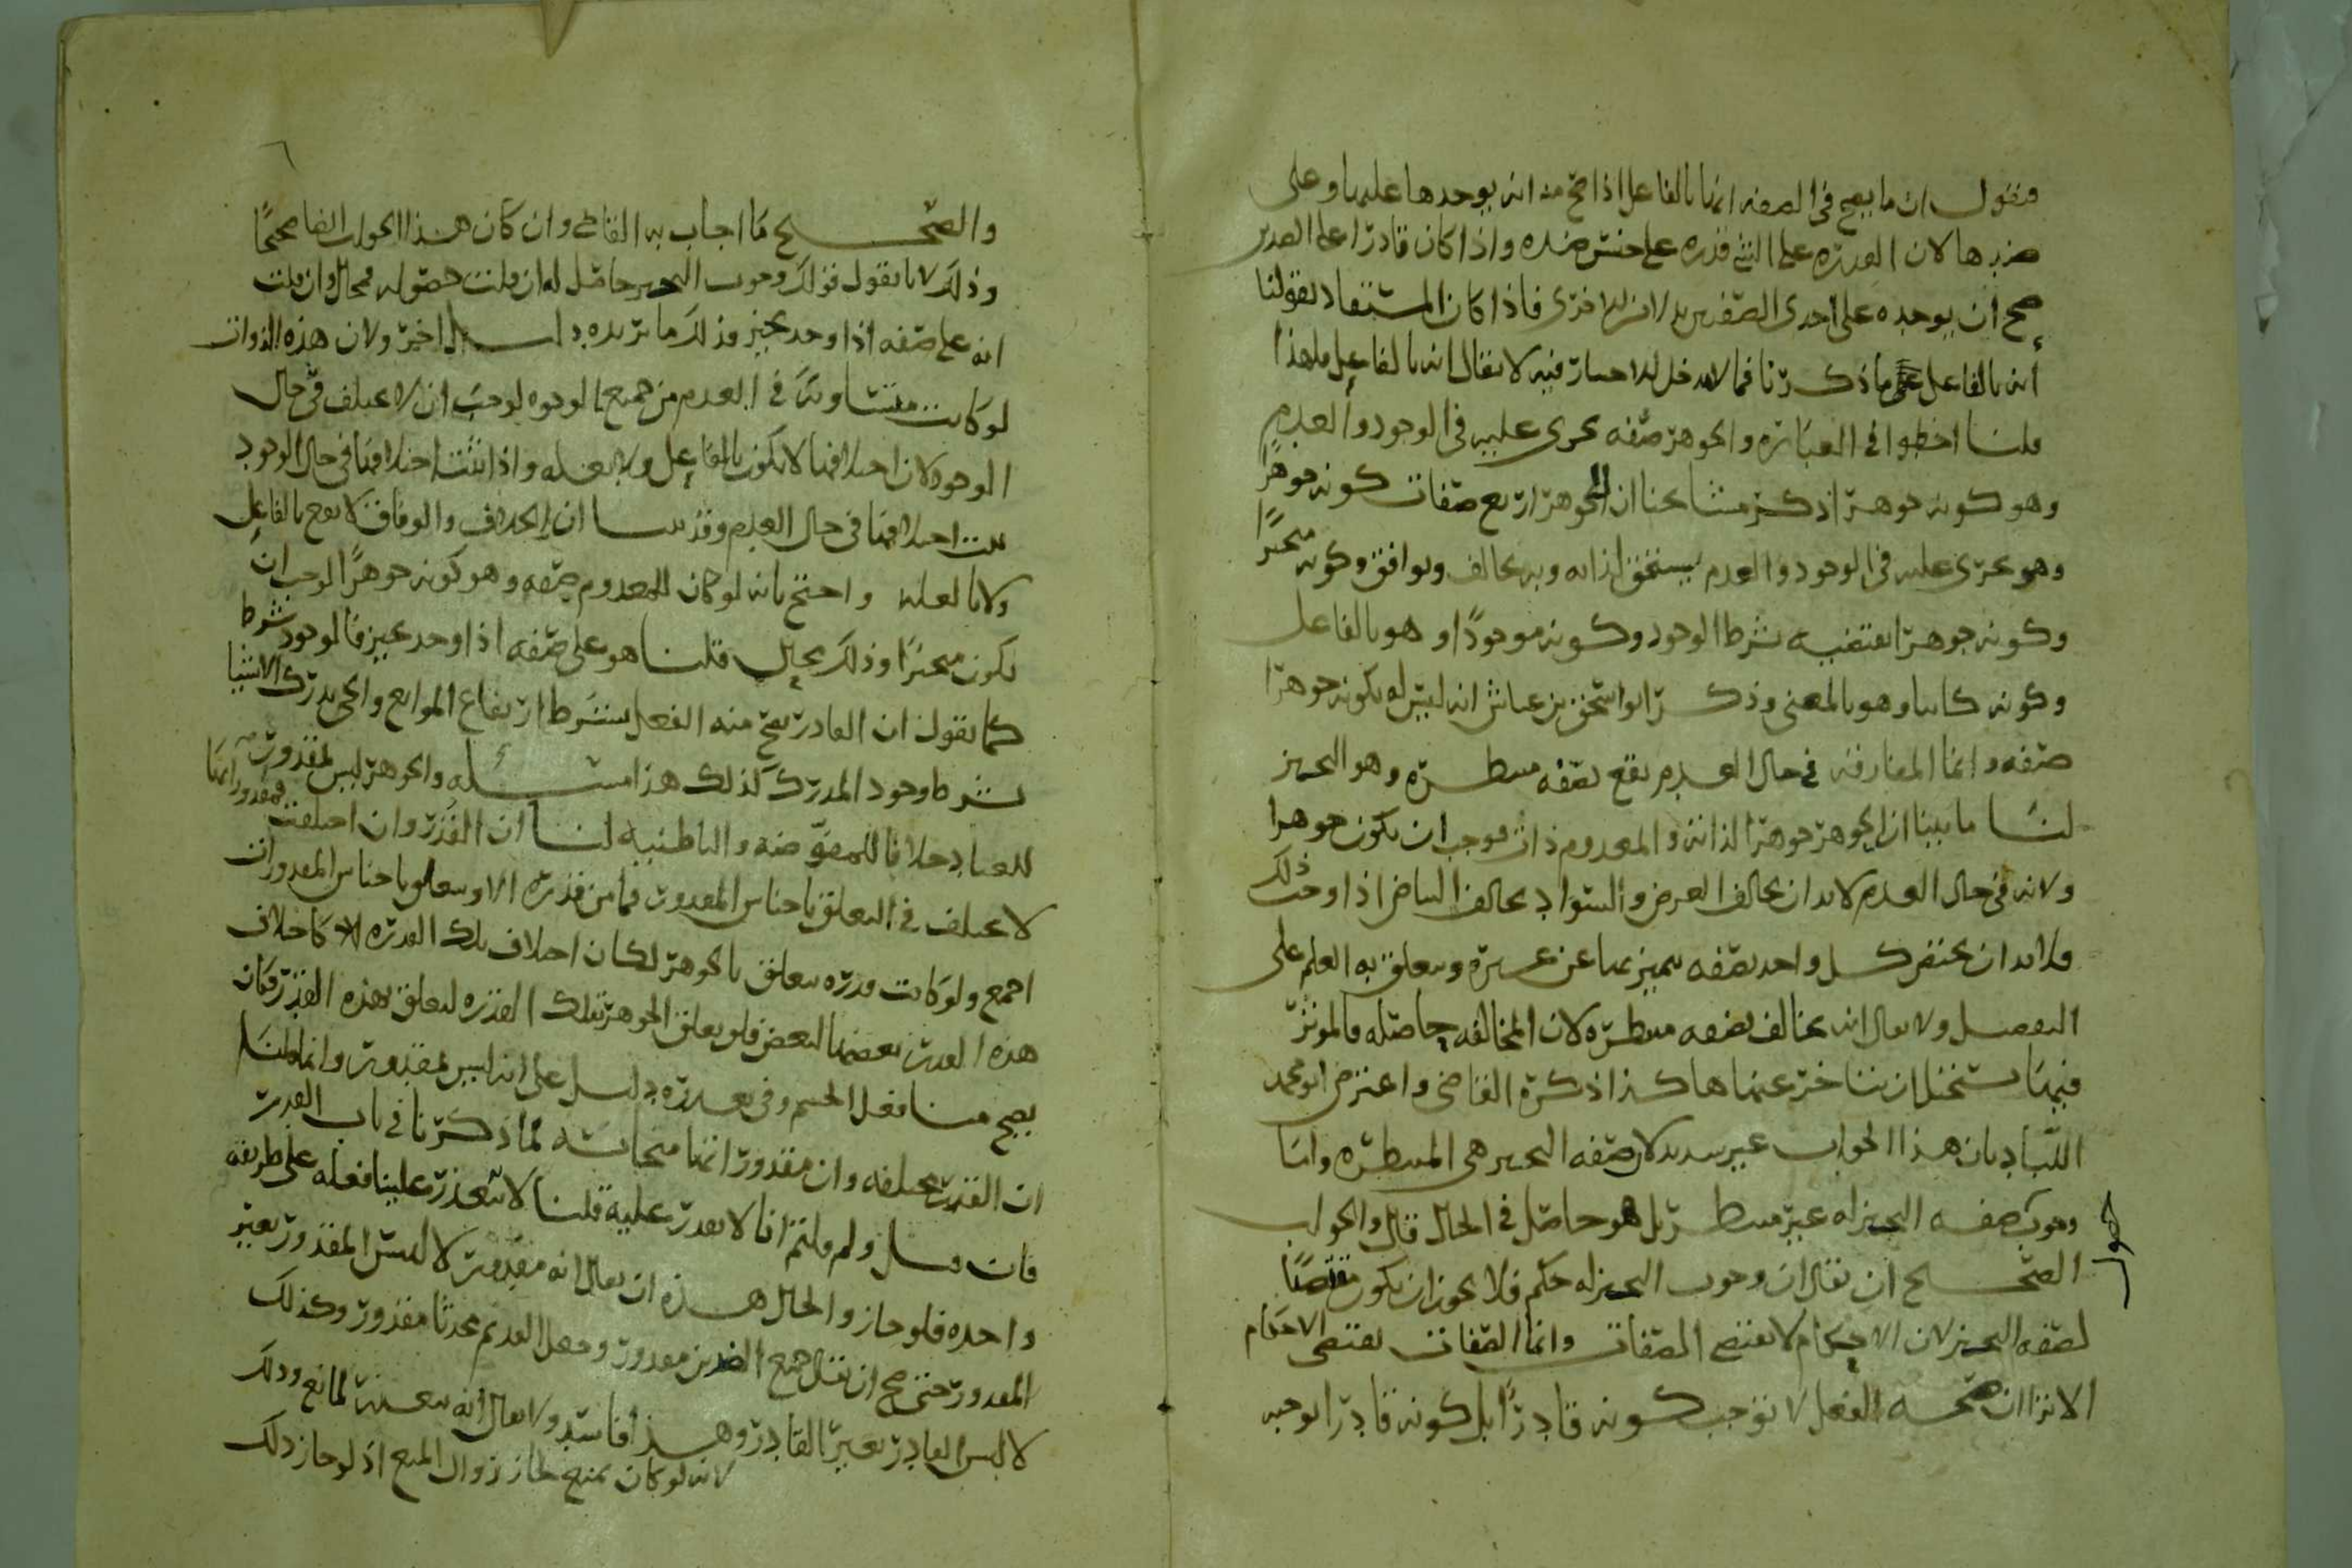 فنقول ان ما يصح في الصفه انها بالفاعل اذا صح منه ان يوجدها عليها وعلى
ضدها لان القدره على الشي قدره على جنس ضده واذا كان قادرا على الضدين
صح ان يوجده على احدى الصفتين بدلا من الاخرى فاذا كان المستفاد بقولنا
انه بالفاعل ما ذكرنا فما لا مدخل للاختيار فيه لا يقال انه بالفاعل فلهذا
قلنا اخطوا في العباره والجوهر صفه تجرى عليه في الوجود والعدم
وهو كونه جوهرا ذكر مشايخنا ان للجوهر اربع صفات كونه جوهرا
وهو تجرى عليه في الوجود والعدم يستحق لذاته وبه يخالف ويوافق وكونه متحيزا
وكونه جوهرا تقتضيه بشرط الوجود وكونه موجودا وهو بالفاعل
وكونه كاينا وهو بالمعنى وذكر ابو اسحق بن عياش انه ليس له بكونه جوهرا
صفه وانما المفارقه في حال العدم تقع بصفه منتظره وهو التحيز
لنا ما بينا ان الجوهر جوهر لذاته والمعدوم ذات فوجب ان يكون جوهرا
ولانه في حال العدم لابد ان يخالف العرض والسواد يخالف البياض اذا وجب ذلك
فلابد ان يختص كل واحد بصفه يتميز بها عن غيره ويتعلق به العلم على
التفصيل ولا يقال انه يخالف بصفه منتظره لان المخالفه حاصله فالموثر
فيها يستحيل ان يتاخر عنها هاكذا ذكره القاضى واعترض ابو محمد
اللباد بان هذا الجواب غير سديد لان صفه التحيز هي المنتظره واما
وجوب صفه التحيز له غير منتظر بل هو حاصل في الحال قال والجواب
الصحيح ان يقال ان وجوب التحيز له حكم فلا يجوز ان يكون مقتضيا
لصفه التحيز لان الاحكام لا تقتضي الصفات وانما الصفات تقتضي الاحكام
الا ترا ان صحه الفعل لا توجب كونه قادرا بل كونه قادرا توجبه
والصحيح ما اجاب به القاضي وان كان هذا الجواب ايضا صحيحا
وذلك لانا نقول قولك وجوب التحيز حاصل له ان قلت حصوله فمحال وان قلت
انه على صفه اذا وجد تحيز فذلك ما نريده دليل اخر ولان هذه الذوات
لو كانت متساويه في العدم من جميع الوجوه لوجب ان لا تختلف في حال
الوجود لان اختلافها لا يكون بالفاعل ولا بعله واذا ثبت اختلافها في حال الوجود
ثبت اختلافها في حال العدم وقد بينا ان الخلاف والوفاق لا يقع بالفاعل
ولا بالعله واحتج بانه لو كان للمعدوم صفه وهو كونه جوهرا لوجب ان
يكون متحيزا وذلك محال قلنا هو على صفه اذا وجد تحيز فالوجود شرط
كما نقول ان القادر يصح منه الفعل بشرط ارتفاع الموانع والحي يدرك الاشيا
بشرط وجود المدرك كذلك هذا مسئله والجوهر ليس بمقدور
للعباد خلافا للمفوضه والباطنيه لنا ان القدر وان اختلفت فمقدوراتها
لا تختلف في التعلق باجناس المقدور فما من قدره الا وتتعلق باجناس المقدورات
اجمع ولو كانت قدره تتعلق بالجوهر لكان اختلاف تلك القدره كاختلاف
هذه القدر بعضها لبعض فلو تعلق الجوهر بتلك القدره لتعلق بهذه القدر فكان
يصح منا فعل الجسم وفي تعذره دليل على انه ليس بمقدور وانما قلنا
ان القدر مختلفه وان مقدوراتها متجانسه لما ذكرنا في باب القدر
فان قيل ولم قلتم انا لا نقدر عليه قلنا لانه تعذر علينا فعله على طريقه
واحده فلو جاز والحال هذه ان يقال انه مقدور لالبس المقدور بغير
المقدور حتى صح ان يقال جمع الضدين مقدور وجعل القديم محدثا مقدور وكذلك
لالبس القادر بغير القادر وهذا فاسد ولا يقال انه يتعذر لمانع وذلك
لانه لو كان بمنع لجاز زوال المنع اذ لو جاز ذلك